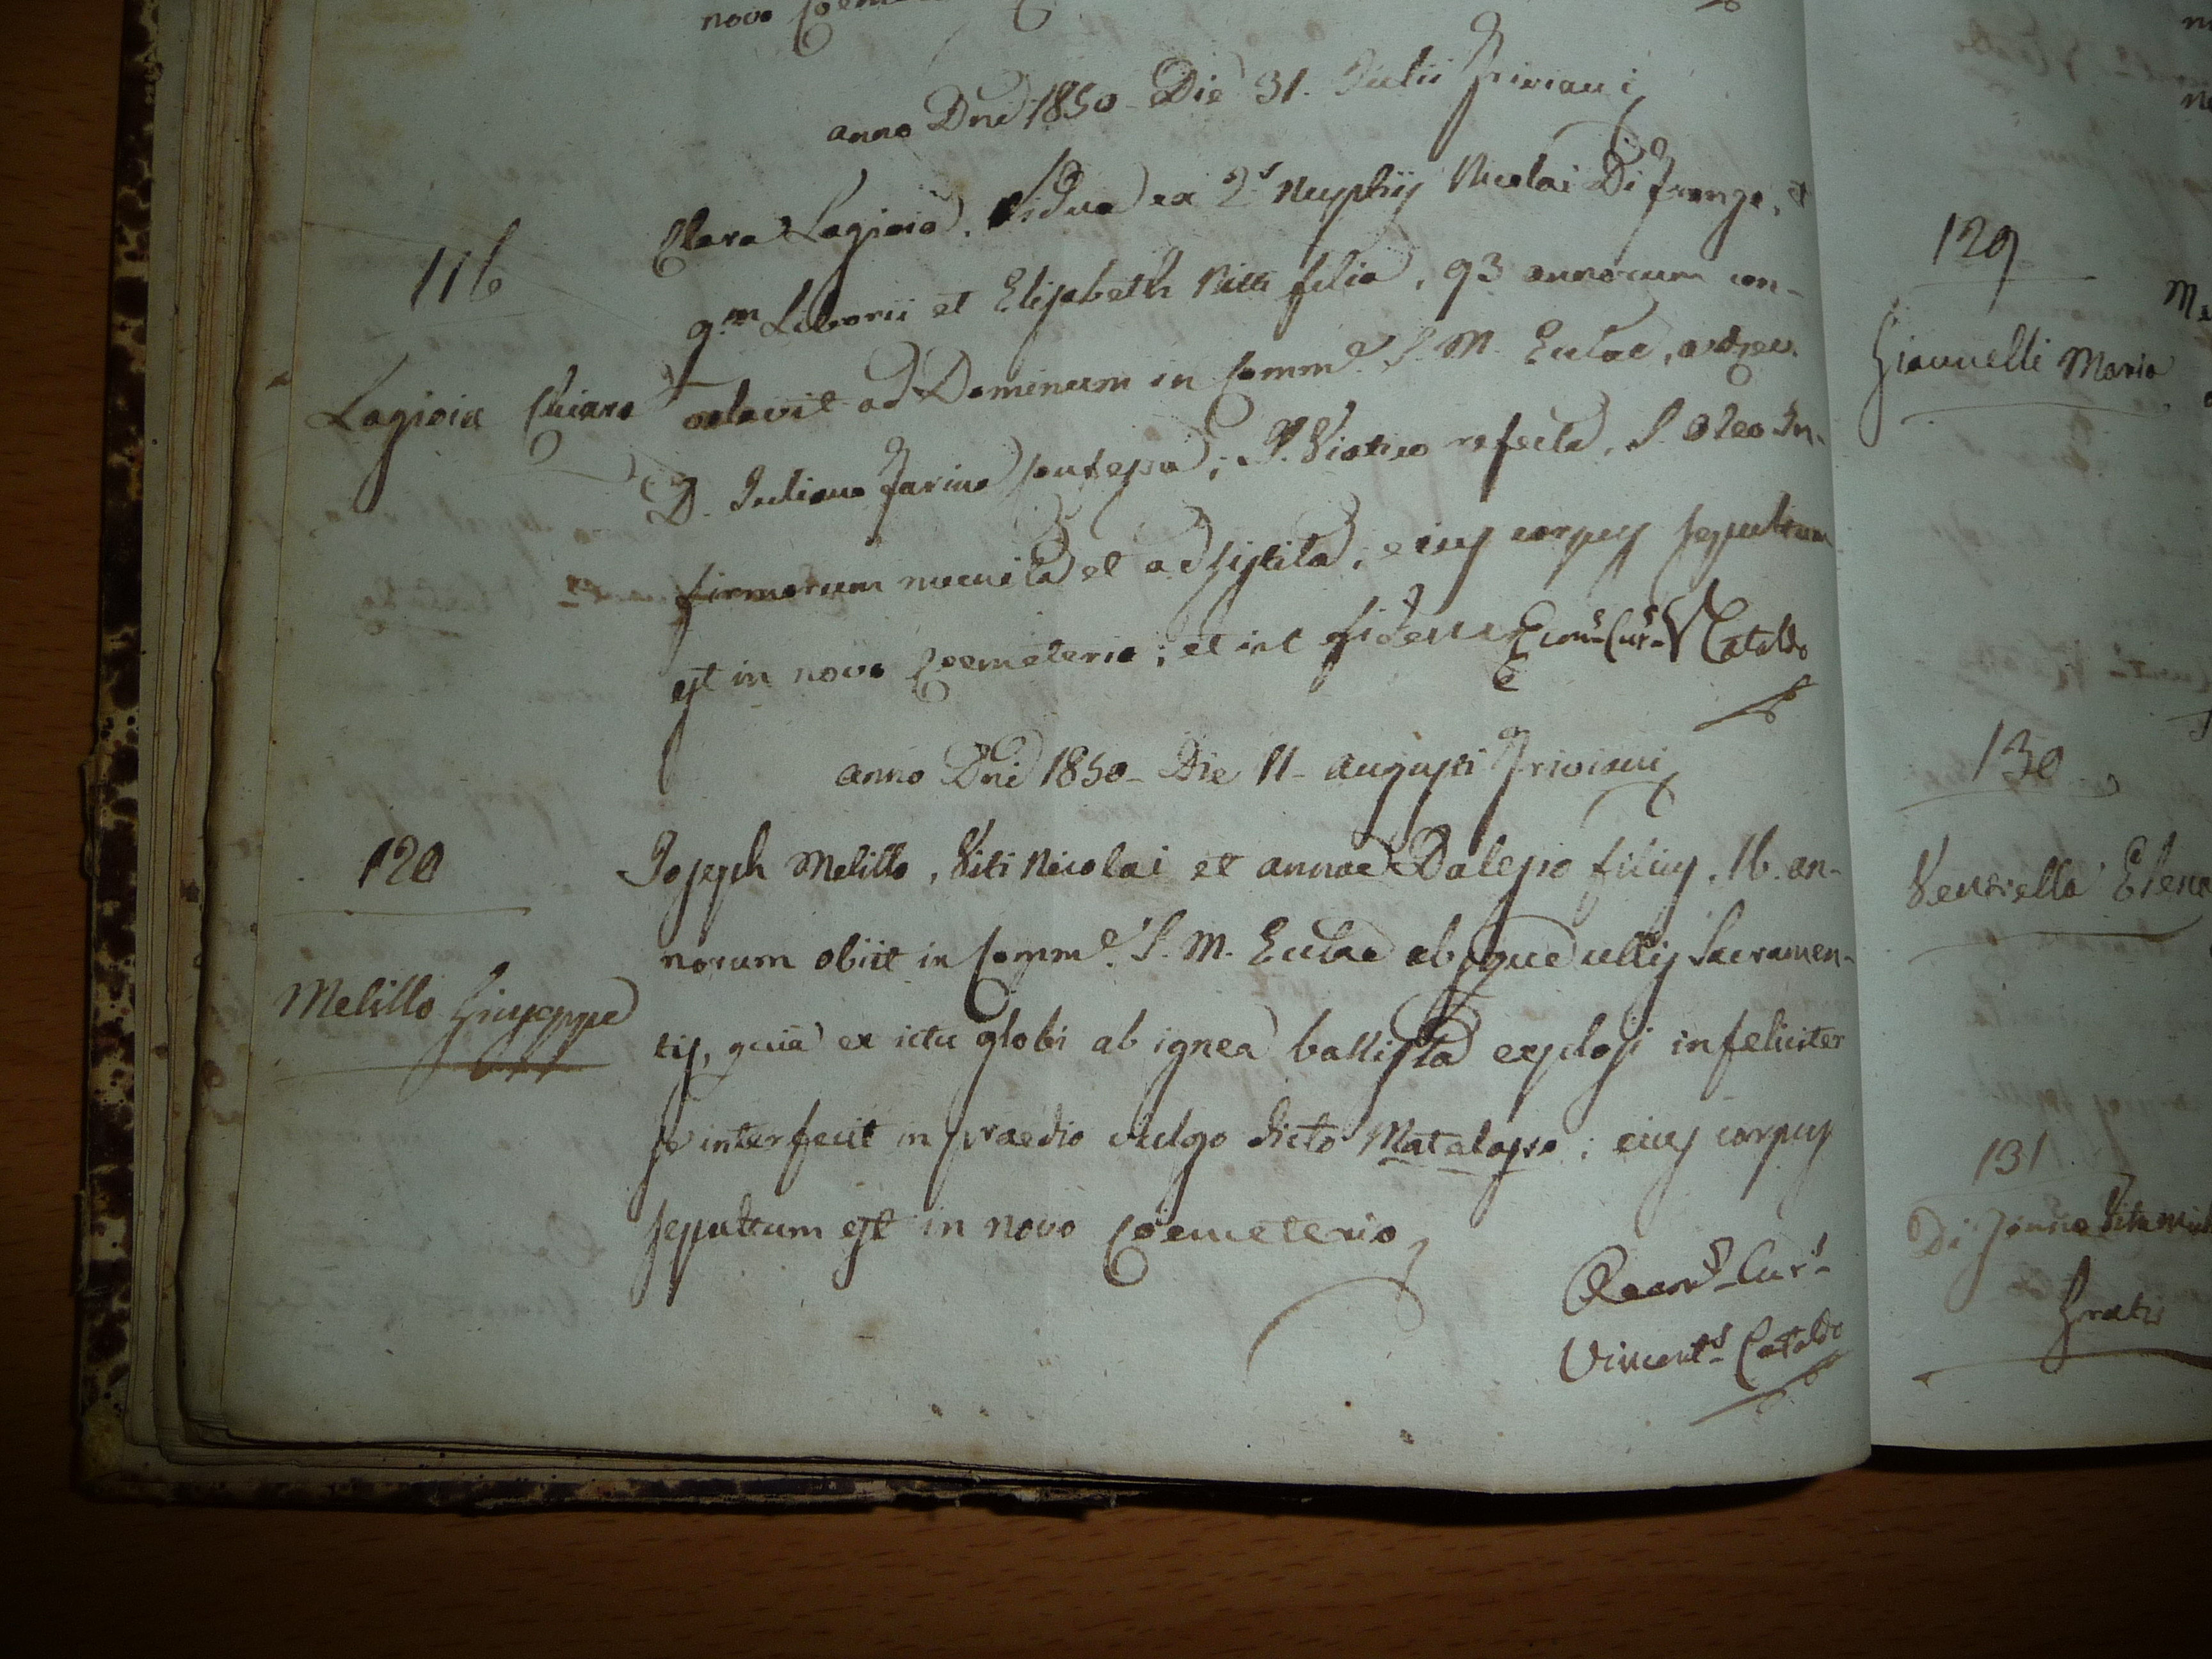 novo
anno Dni 1850 - Die 31. Julii Griviani
116
Clara Lagioia, Vidua ex 2.s Nuptiis Nicolai Di fronzo, et
q.m Liborii et Elisabeth Nitti filia, 93 annorum con-
Lagioia Chiara
volavit ad Dominum in Comm.e S. M. Eclae, a
D. Juliano Farina confessa, S. Viatico refecta, S. Oleo In-
firmorum munita et adsistita, eius corpus sepultum
est in novo Coemeterio; et in fidem Econ.s Cur.s V Cataldo
anno Dni 1850 - Die 11 - augusti Griviani
120
Joseph Melillo, Viti Nicolai et annae Dalesio filius, 16. an-
norum obiit in Comm.e S. M. Eclae absque ullis Sacramen-
Melillo Giuseppe
tis, quia ex ictu globi ab ignea ballista explosi infeliciter
se interfecit in praedio vulgo dicto Matalapro; eius corpus
sepultum est in novo Coemeterio
Oecon.s Cur.s
Vincent.s Cataldo
129
Giannelli Maria
130
Ventrella Elena
131
Di Jonno Vita
Gratis